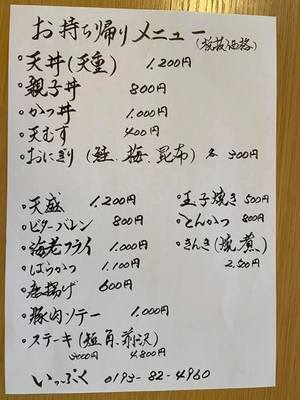 お持ち帰りメニュー
(税抜価格)
・天丼(天重) 1.200円
・親子丼 800円
・かつ丼 1.000円
・天むす 400円
・おにぎり(鮭、梅、昆布)各300円
・天盛 1.200円
・ビターバレン 800円
・海老フライ 1.000円
・はらかつ 1.100円
・唐揚げ 600円
・豚肉ソテー 1.000円
・ステーキ(短角、前沢)
3000円 4.800円
・玉子焼き 500円
・とんかつ 800円
・きんき(焼、煮)
2.500円
いっぷく 0193-82-4960